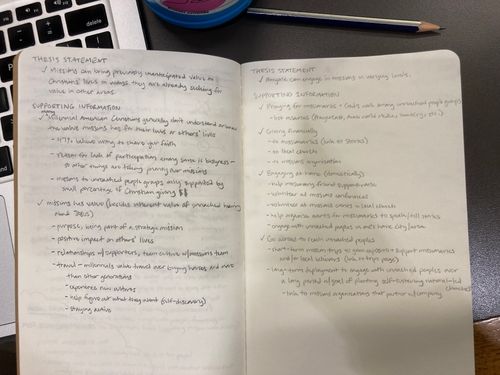 THESIS STATEMENT
✓ Missions can bring previously unanticipated value to
Christians' lives in ways they are already looking for
value in other areas.
SUPPORTING INFORMATION
✓ Millennial American Christians generally don't understand or know
the value missions has for their lives or others' lives
- 47% believe wrong to share your faith
- reason for lack of participating among some is busyness –
so other things are taking priority over missions
- missions to unreached people groups only supported by
small percentage of Christian giving $$
✓ missions has value (besides inherent value of unreached hearing
about Jesus)
- purpose, being part of a strategic mission
- positive impact on others' lives
- relationships w/ supporters, team culture w/ missions team
- travel – millennials value travel over buying homes and more
than other generations
- experience new cultures
- help figure out what they want (self-discovery)
- staying active
THESIS STATEMENT
✓ People can engage in missions in varying levels.
SUPPORTING INFORMATION
✓ Praying for missionaries + God's work among unreached people groups
- list resources
✓ Giving financially
- to missionaries (link to stories)
- to local church
- to missions organization
✓ Engaging at home (domestically)
- help missionary find supporters
- volunteer at missions conferences
- volunteer at missions events in local church
- help organize events for missionaries to speak/tell stories
- engage with unreached peoples in one's home city/area
✓ Go abroad to reach unreached peoples
- short-term missions trips to gain exposure + support missionaries
and/or local believers (link to trips page)
- long-term deployment to engage with unreached peoples over
a long period w/ goal of planting self-sustaining national-led
churches
- link to missions organizations that partner w/ company